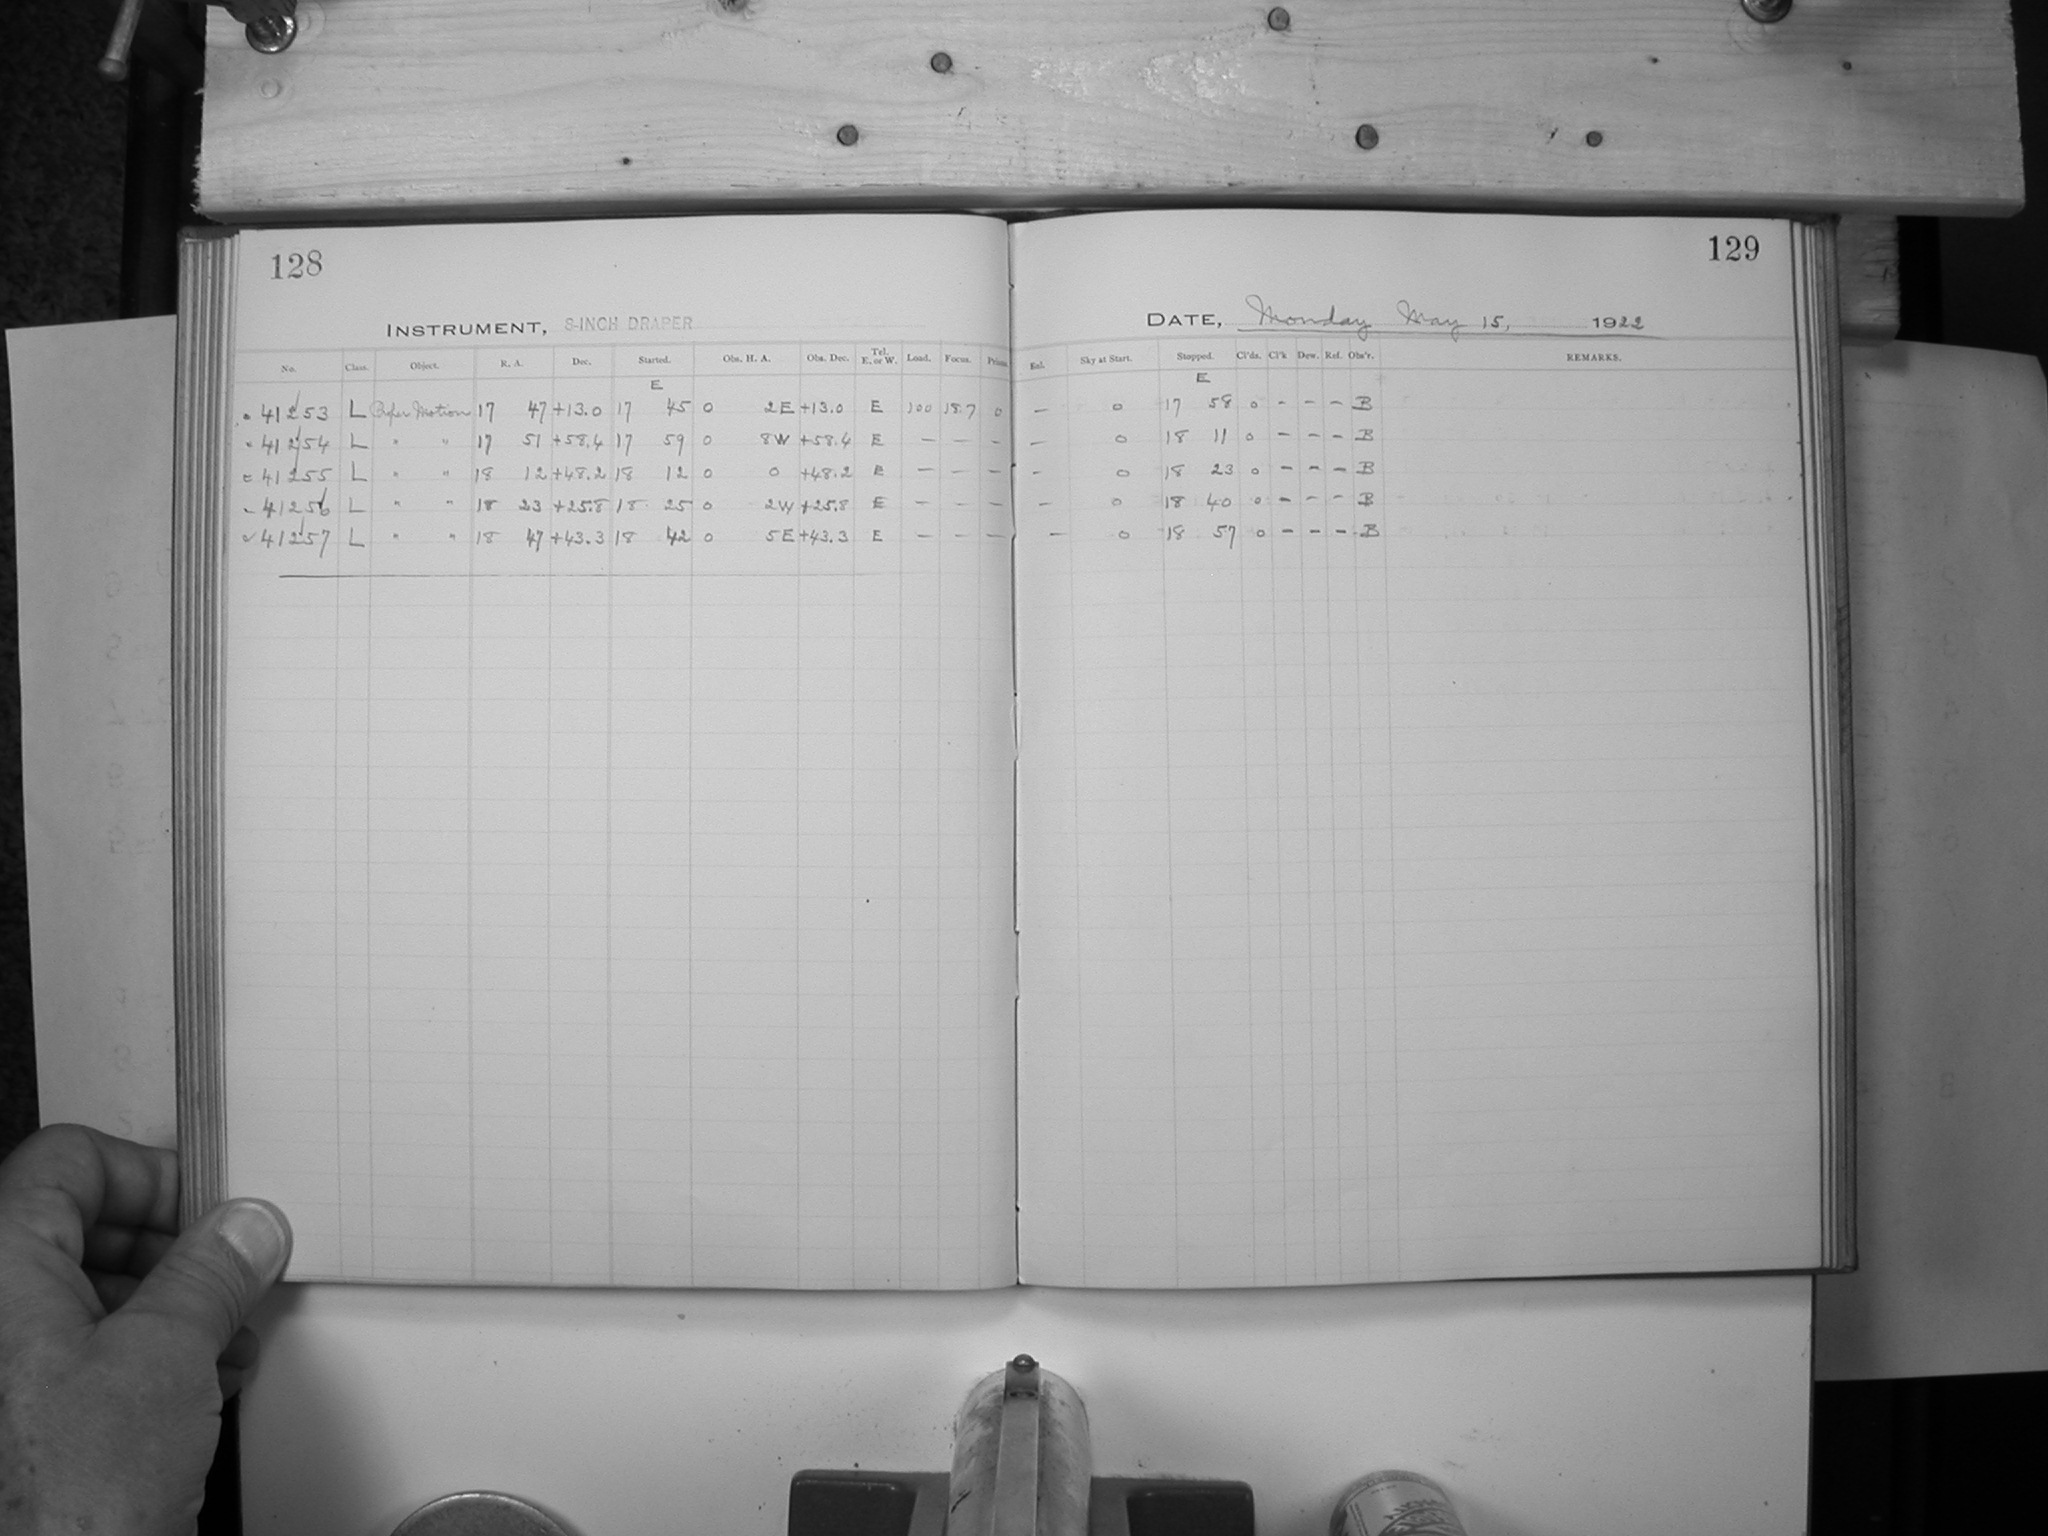 128
INSTRUMENT, 8-INCH DRAPER
No. Class. Object. R. A. Dec. Started. Obs. H. A. Obs. Dec. Tel. E. or W. Load. Focus. Prism.
E
41253 L Proper Motion 17 47 +13.0 17 45 0 2E +13.0 E 100 18.7 0
41254 L " " 17 51 +58.4 17 59 0 8W +58.4 E — — —
41255 L " " 18 12 +48.2 18 12 0 0 +48.2 E — — —
41256 L " " 18 23 +25.8 18 25 0 2W +25.8 E — — —
41257 L " " 18 47 +43.3 18 42 0 5E +43.3 E — — —
129
DATE, Monday May 15, 1922
Exl. Sky at Start. Stopped. Cl'ds. Cl'k Dew. Ref. Obs'r. REMARKS.
E
— 0 17 58 0 - - - B
— 0 18 11 0 - - - B
— 0 18 23 0 - - - B
— 0 18 40 0 - - - B
— 0 18 57 0 - - - B